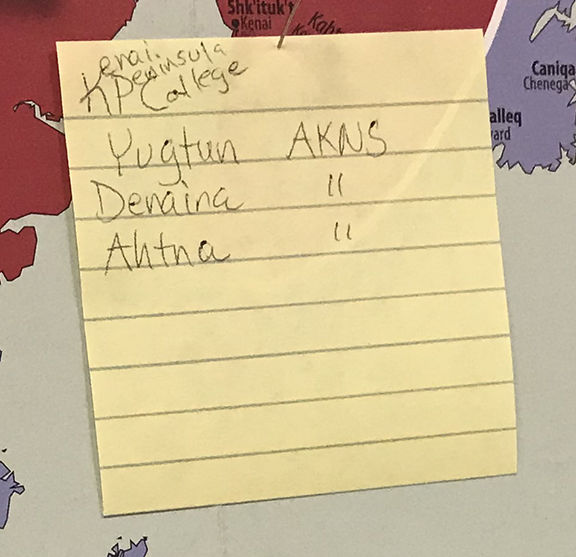 Shk'ituk't
Kenai
Caniqa
Chenega
alleq
ard
enai
Peninsula
KP College
Yugtun AKNS
Denaina "
Ahtna "